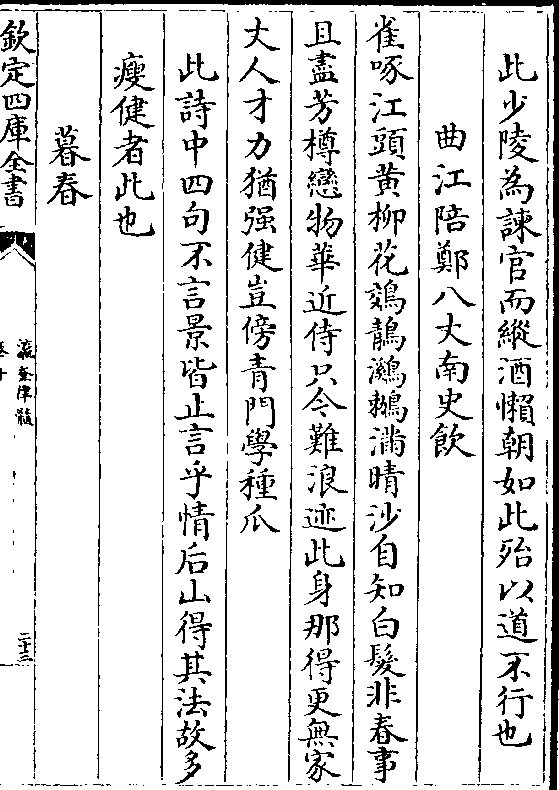 此少陵為諫官而縱酒懶朝如此殆以道不行也
曲江陪鄭八丈南史飲
雀啄江頭黄柳花鵁鶄鸂鶒滿晴沙自知白髮非春事
且盡芳樽戀物華近侍只今難浪迹此身那得更無家
丈人才力猶强健豈傍青門學種瓜
此詩中四句不言景皆止言乎情后山得其法故多
瘦健者此也
暮春
欽定四庫全書
瀛奎律髓
卷十
二十三